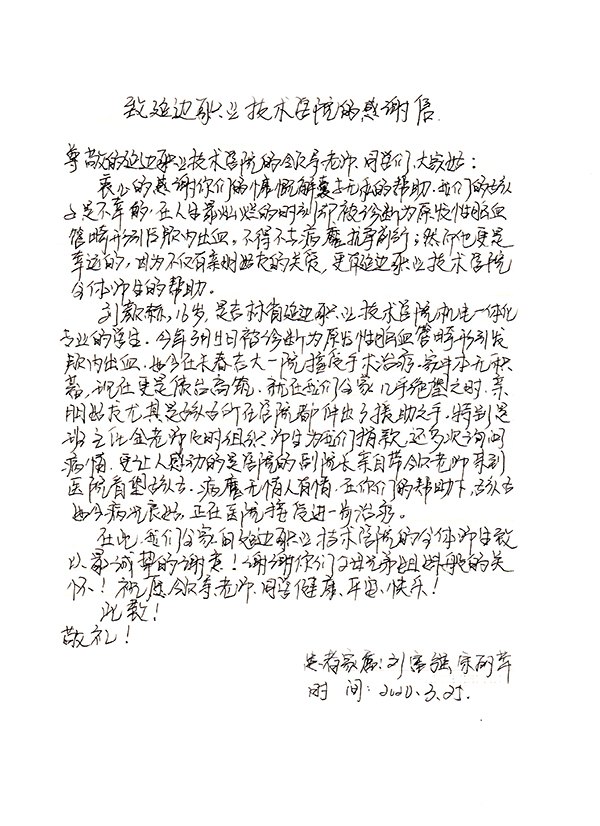 致延边职业技术学院的感谢信
尊敬的延边职业技术学院的领导老师、同学们,大家好:
衷心的感谢你们的慷慨解囊与无私的帮助。我们的孩
子是不幸的,在人生最灿烂的时刻却被诊断为原发性脑血
管畸形引发颅内出血。不得不与病魔抗争刷新;然而他更是
幸运的,因为不仅有亲朋好友的关怀,更有延边职业技术学院
全体师生的帮助。
刘 16岁,是吉林省延边职业技术学院机电一体化
专业的学生。今年3月9日被诊断为原发性脑血管畸形引发
颅内出血。如今在长春吉大一院接受手术治疗。家中本无积
蓄,现在更是债台高筑。就在我们全家几乎绝望之时,亲
朋好友尤其是孩子所在学院都伸出了援助之手。特别是
班主任金老师及时组织师生为我们捐款,还多次询问
病情。更让人感动的是学院的副院长亲自带领老师来到
医院看望孩子。病魔无情人有情。在你们的帮助下,孩子
如今病况良好,正在医院接受进一步治疗。
在此,我们全家向延边职业技术学院的全体师生致
以最诚挚的谢意!谢谢你们父母兄弟姐妹般的关
怀!祝愿领导、老师、同学健康、平安、快乐!
此致!
敬礼!
患者家属:刘
时 间:2020.3.25.